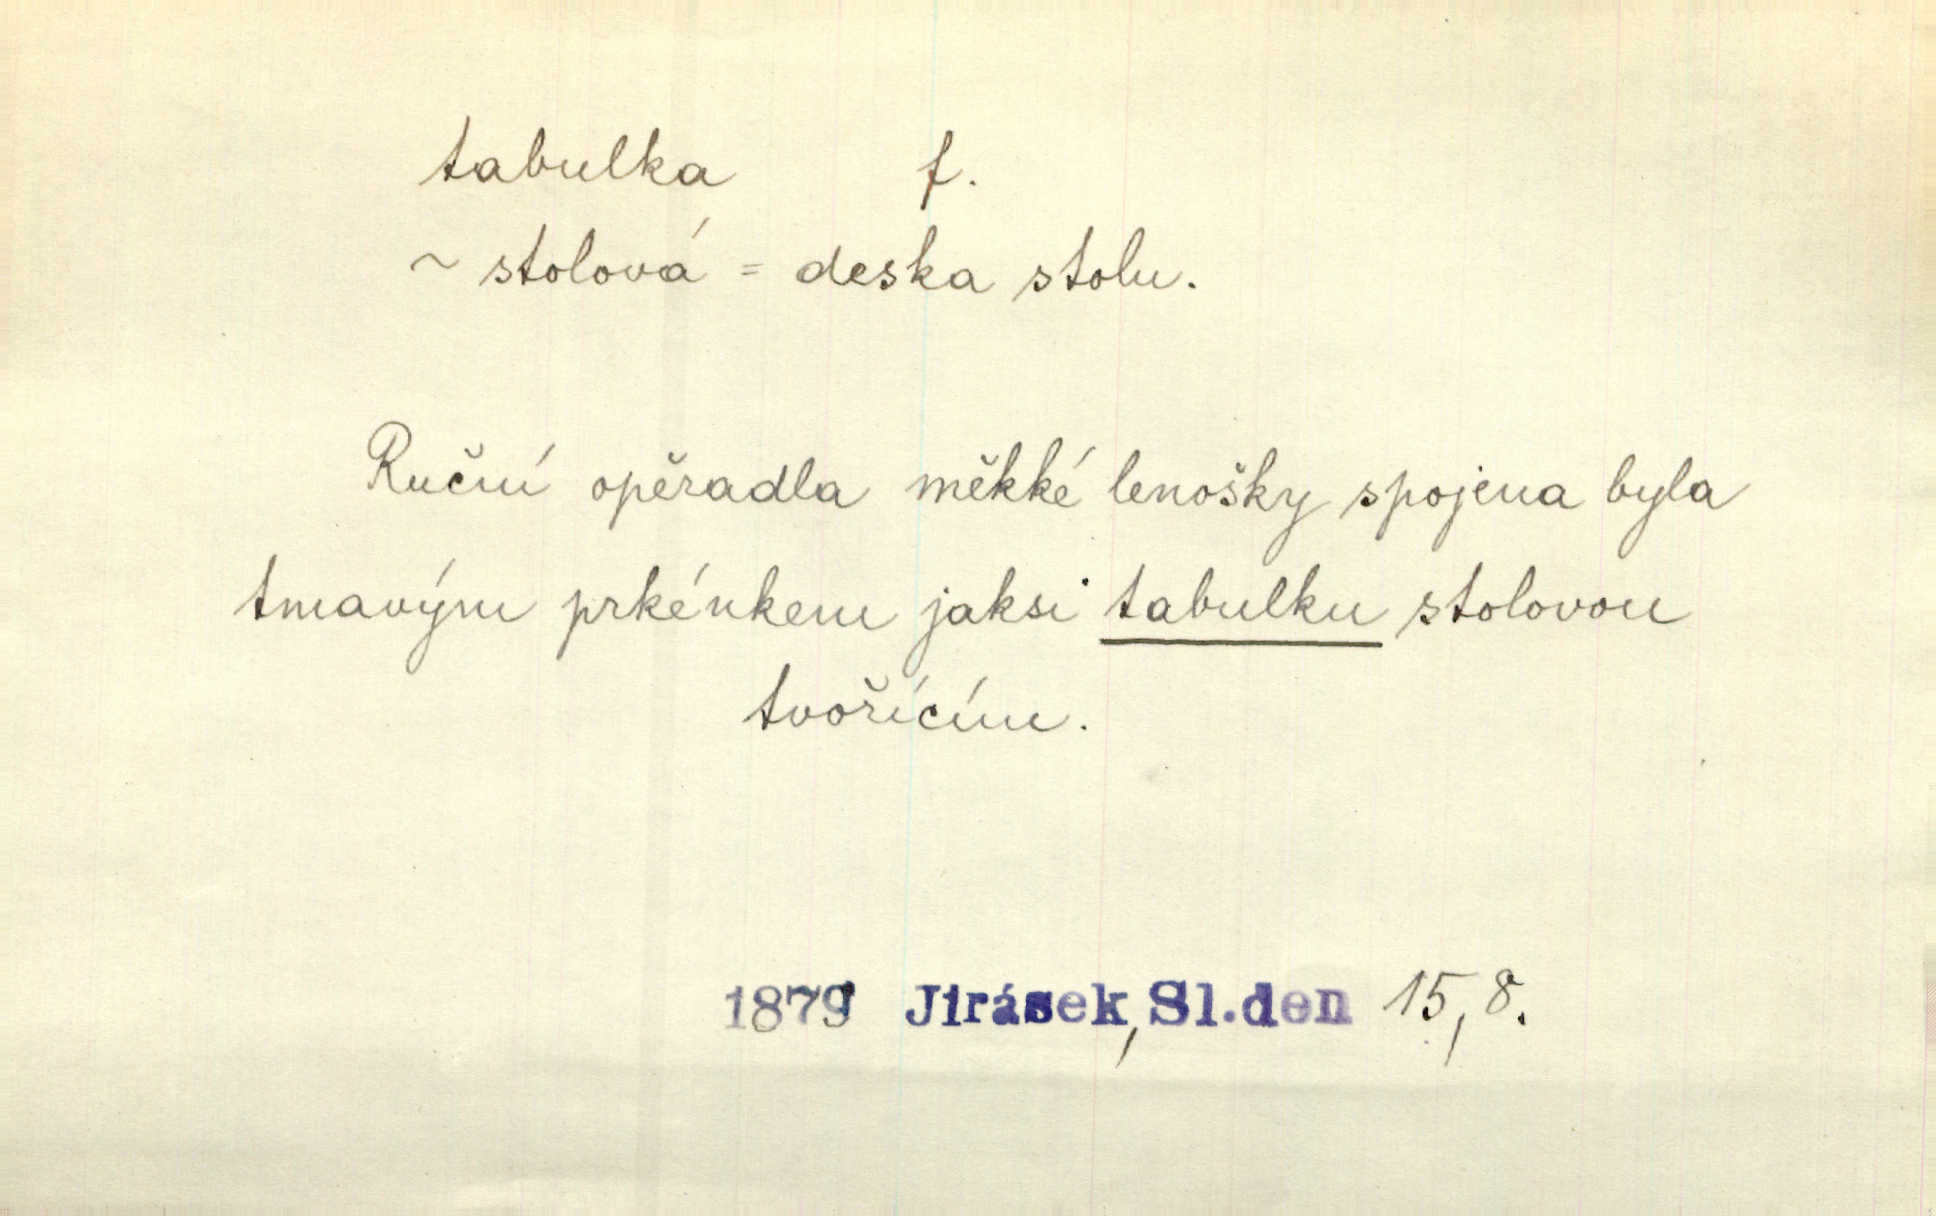 tabulka f.
~ stolová = deska stolu.
Ruční opěradla měkké lenošky spojena byla
tmavým prkénkem jaksi tabulku stolovou
tvořícím.
1879 Jirásek, Sl.den 15, 8.